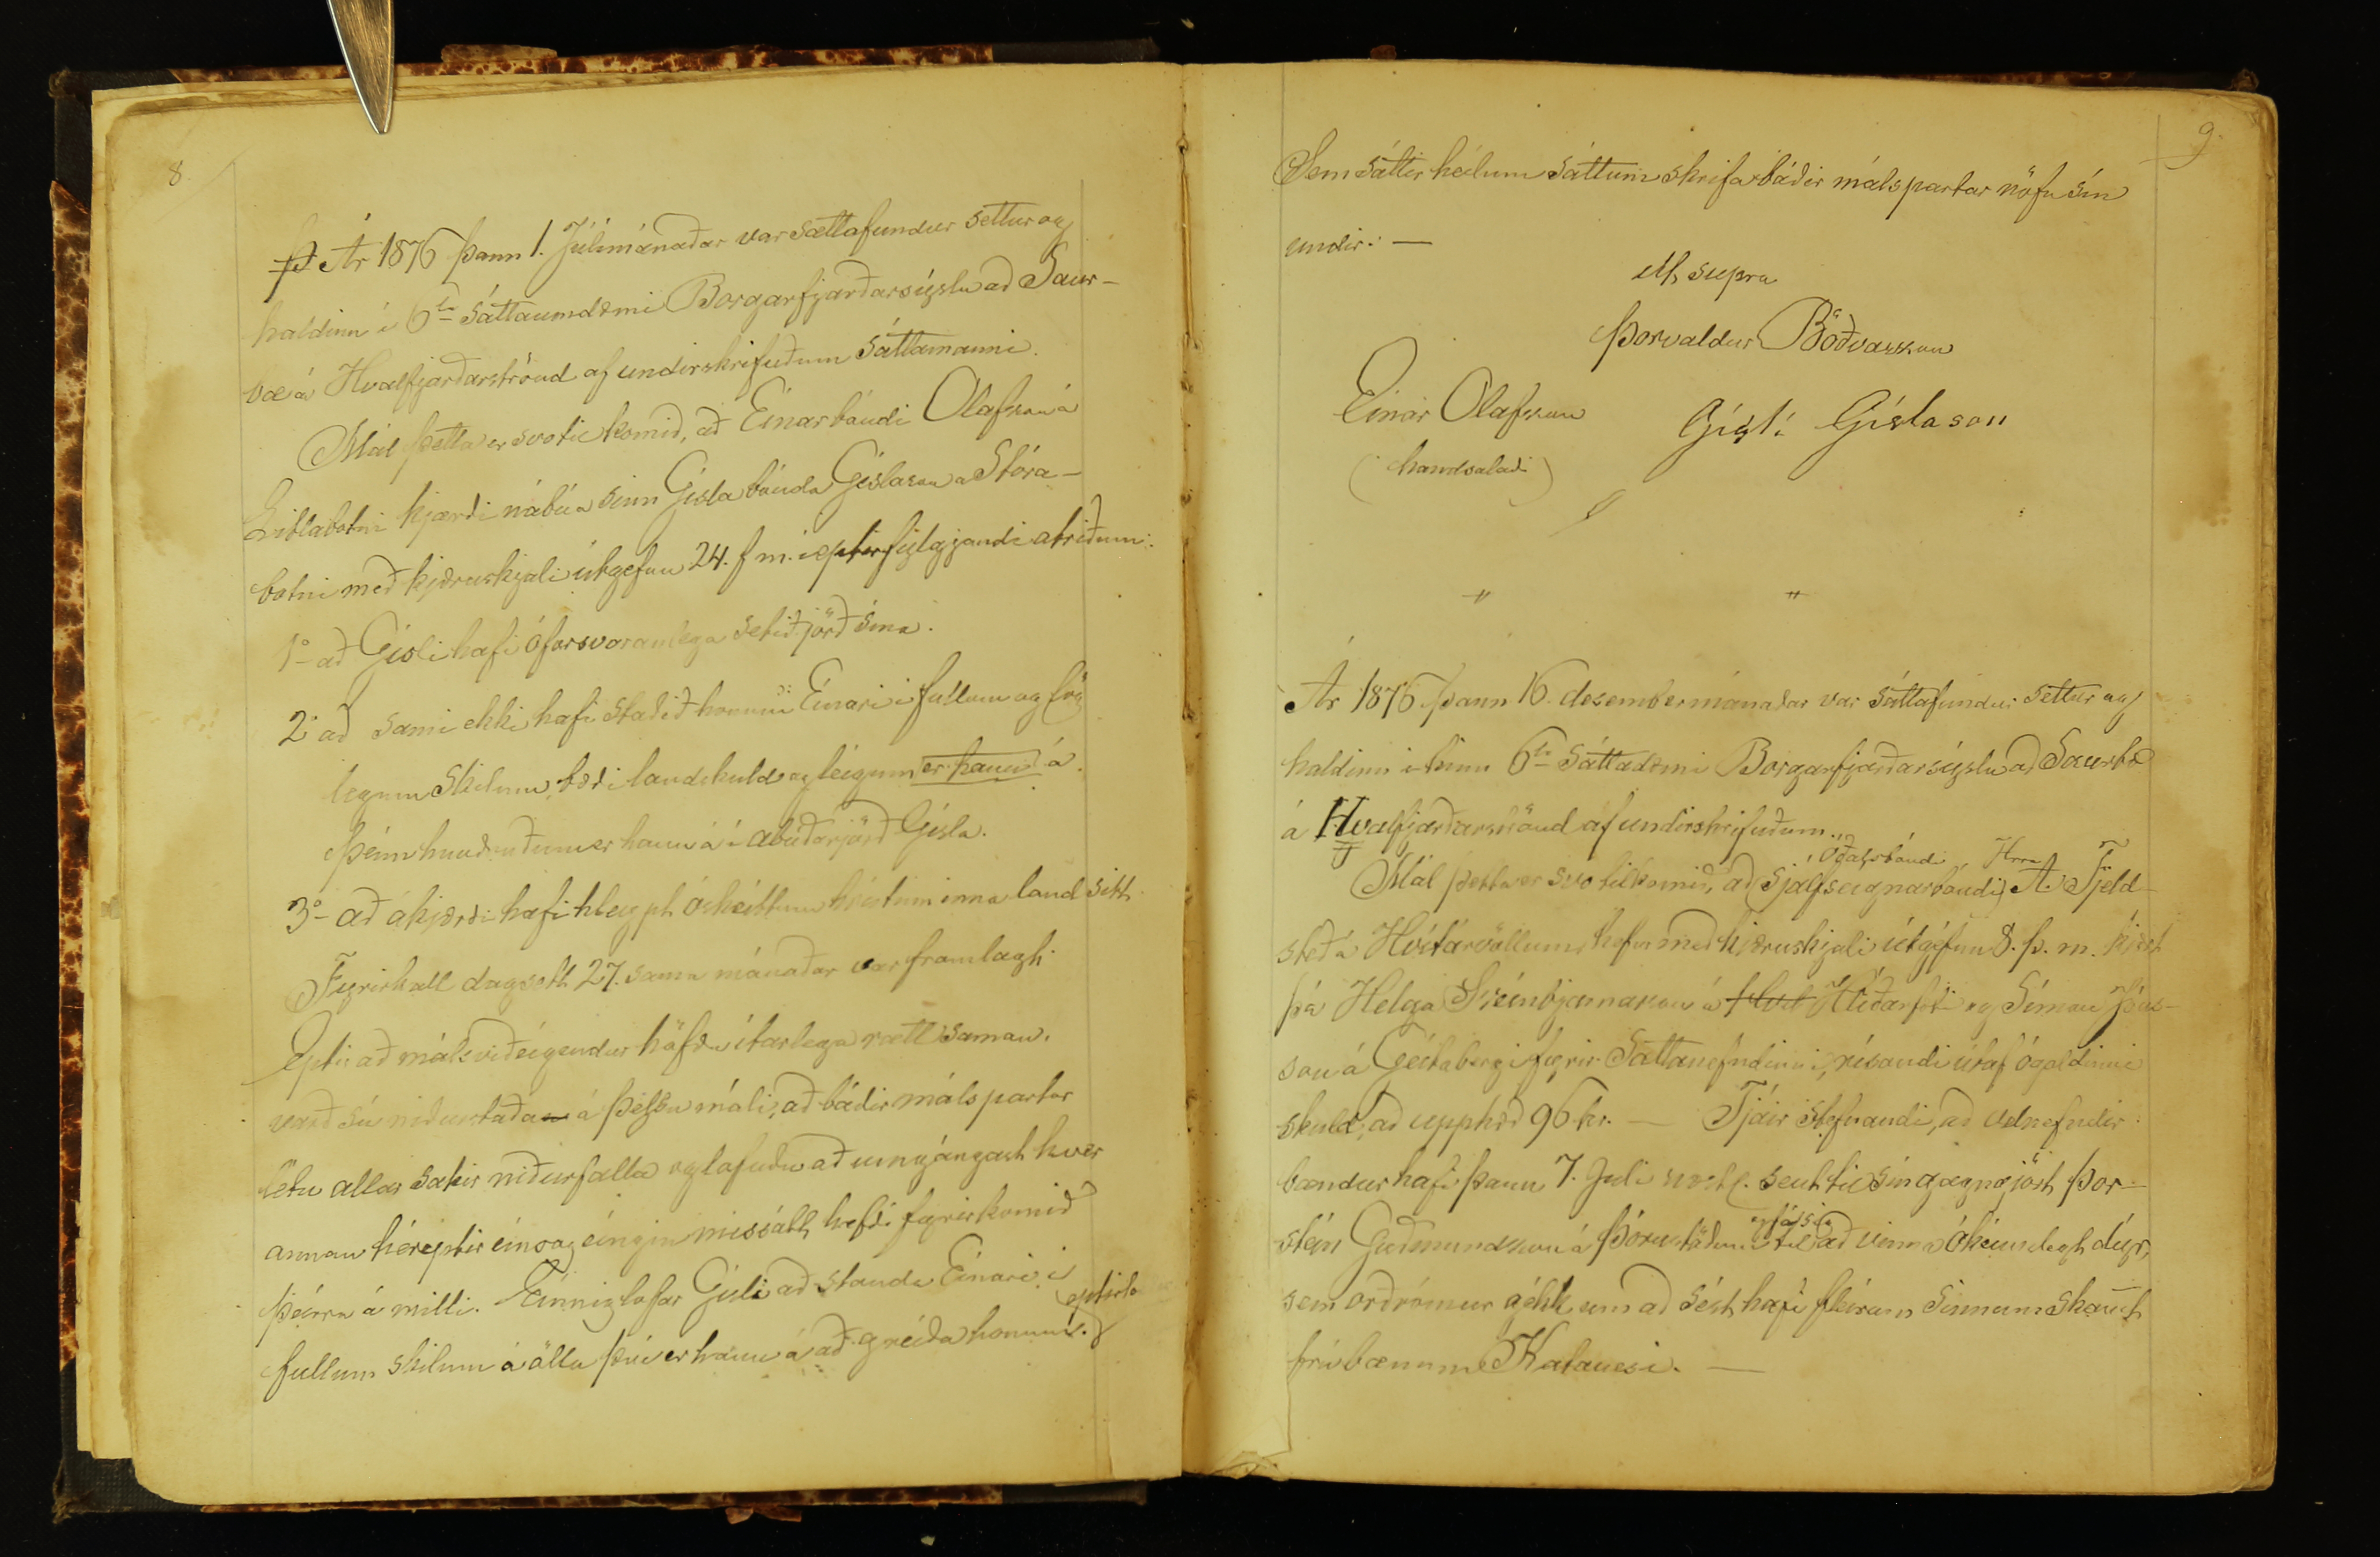 8.
Ár 1876 þann 1. Júlímánaðar var sættafundur settur og
haldinn í 6ta sáttaumdæmi Borgarfjarðarsýslu að Saur-
bæ á Hvalfjarðarströnd af undirskrifuðum sáttamanni.
Mál þetta er svo til komið, að Einar bóndi Olafsson á
Litlabotni kjærði nábúa sinn Gísla bónda Gíslason a Stóra-
botni með kjæruskjali útgefnu 24. f m. i eptirfylgjandi atriðum:
1o að Gísli hafi óforsvaranlega setið jörð sína.
2o að sami ekki hafi staðið honum Einari i fullum og lög
legum skilum, bæði landskuld og leigum er hann á
þeim hundruðum er hann á í ábúðarjörð Gísla.
3o að ákjærði hafi hleypt óskeittum hestum inna land sitt.
Fyrirkall dagsett 27. sama mánaðar var framlagt.
Eptir að málsviðeigendur höfðu ítarlega rætt saman.
varð sú niðurstaða á þessu máli, að báðir málspartar
létu allar sakir niðurfalla og lofuðu að umgángast hver
annan héreptir eins og eingin missátt hefði fyrirkomið
þeirra á milli. Einnig lofar Gísli að standa Einari í
fullum skilum á öllu því er hann á að greiða honum
9.
Sem sáttir heilum sáttum skrifa báðir málspartar nöfn sín
undir: —
Ut supra
Þorvaldur Böðvarsson
Einar Olafsson Gísli Gíslason
(handsalaði)
" "
Ár 1876 þann 16. desembermánaðar var sáttafundur settur og
haldinn i hinu 6ta Sáttadæmi Borgarfjarðarsýslu að Saurbæ
á Hvalfjarðarströnd af undirskrifuðum.
óðalsbóndi Hrra
Mál þetta er svo tilkomið, að sjálfseignarbóndi, A. Fjeld-
steð á Hvítárvöllum, hefur með kjæruskjali útgefnu 8. þ. m. kjært
þá Helga Sveinbjarnarson á Hlíðarfæti og Símon Jóns-
son á Geitabergi fyrir Sáttanefndinni, rísandi útaf ógoldinni
skuld, að upphæð 96 kr. — Tjáir stefnandi, að velnefndir
bændur hafi þann 7. Juli sent til sín gagngjört Þor-
stein Guðmundsson á Þórustöðum til að vinna ókennilegt dýr,
sem orðrómur gékk um að sést hafi fleirum sinnum skamt
frá bænum Katanesi. —